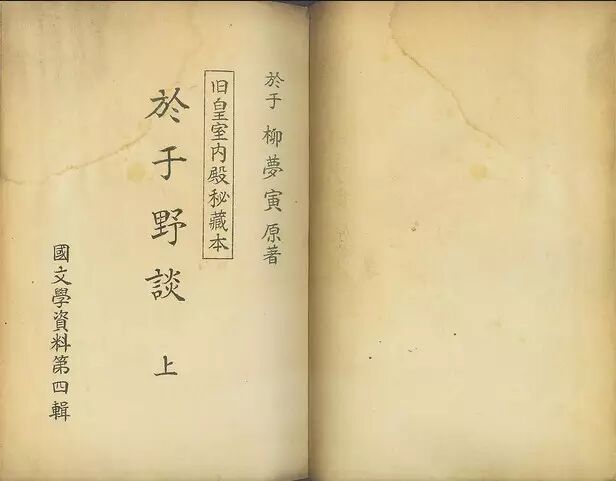 於于 柳夢寅 原著
旧皇室内殿秘藏本
於于野談 上
國文學資料第四輯